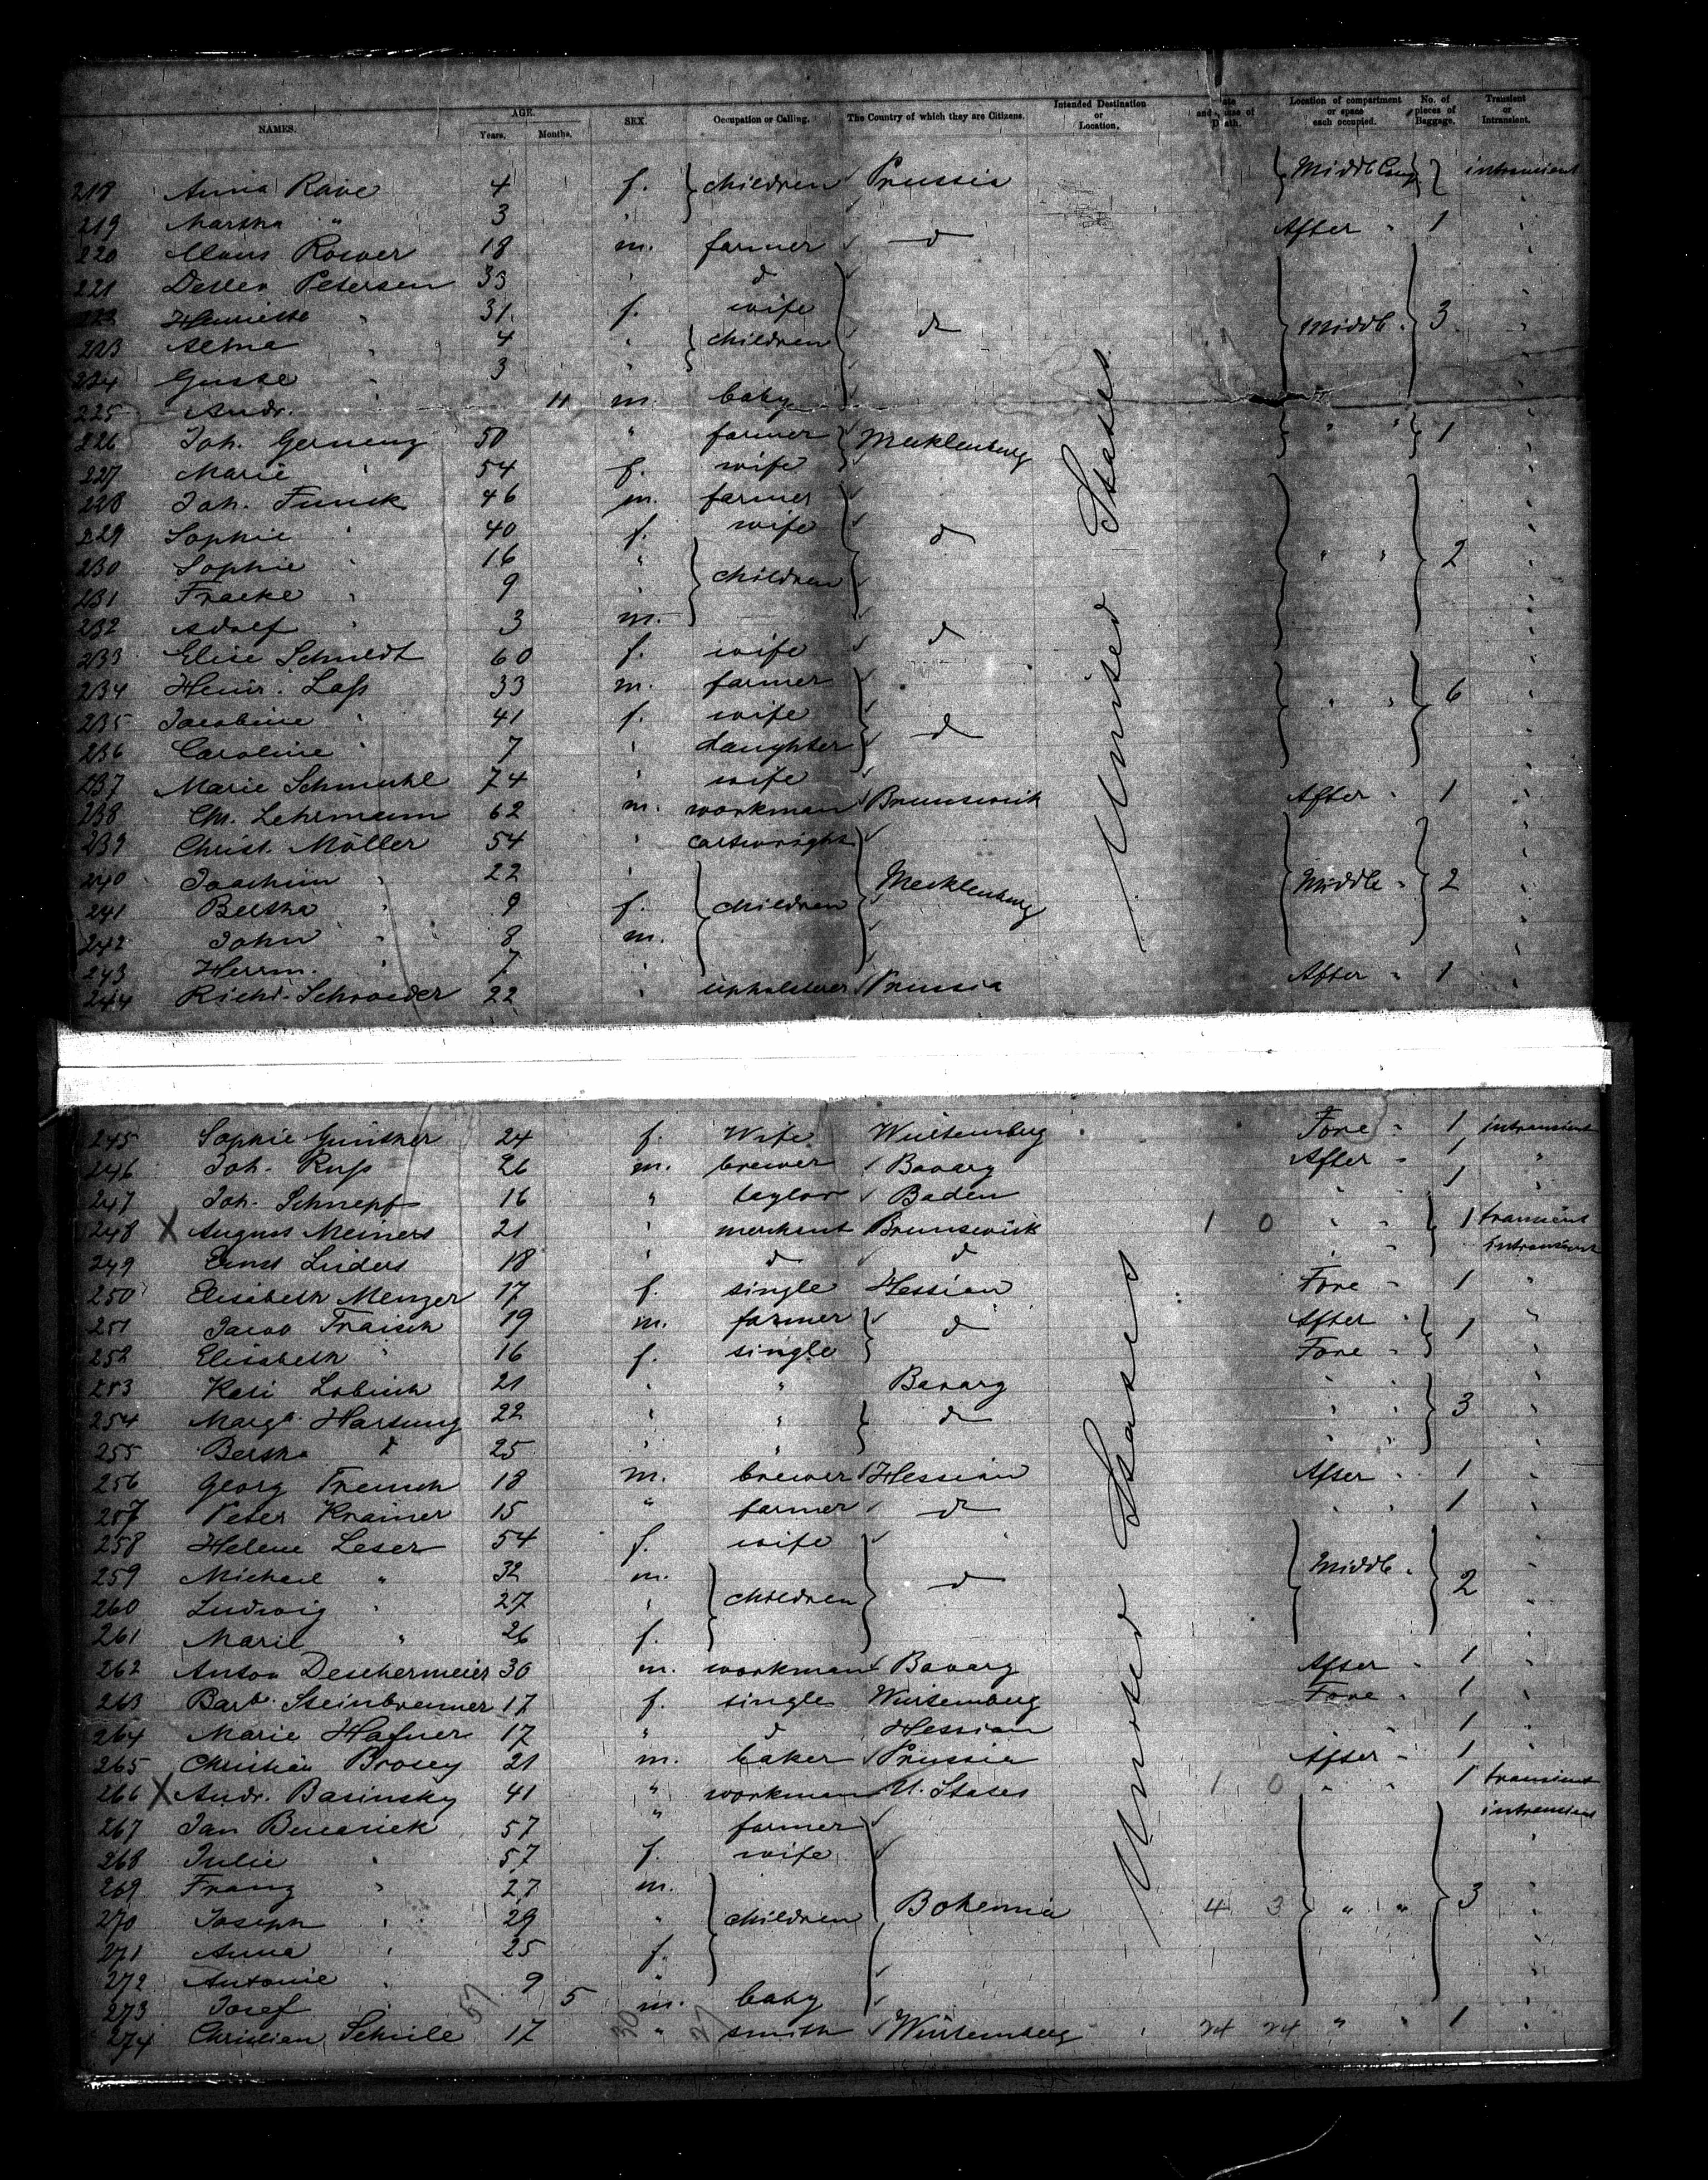 NAMES. AGE. Years. Months. SEX. Occupation or Calling. The Country of which they are Citizens. Intended Destination or Location. Location of compartment or space each occupied. No. of pieces of Baggage. Transient or Intransient.
218 Anna Rave 4 f. children Prussia Middl intransient
219 Martha " 3 "
220 Rower 18 m. farmer d After " 1 "
221 Petersen 33 " d
222 Henriette " 31 f. wife d Middl. 3 "
223 " 4 " children
224 " 3 "
225 Andr. " 11 m. baby
226 Joh. 50 " farmer Mecklenburg " " 1 "
227 Marie " 54 f. wife
228 Joh. Funck 46 m. farmer
229 Sophie " 40 f. wife d
230 Sophie " 16 " children " " 2
231 " 9 "
232 Adolf " 3 m.
233 Elise Schmedt 60 f. wife d
234 Heinr. Laß 33 m. farmer
235 Jacobine " 41 f. wife d " " 6
236 Caroline " 7 " daughter
237 Marie Schmuhl 74 " wife
238 Chr. Lehrmann 62 m. workman Brunswick After " 1 "
239 Christ. Möller 54 " cartwright
240 Joachim " 22 " Mecklenburg Middle " 2
241 Bertha " 9 f. children
242 John " 8 m.
243 Herrm. " 7 "
244 Richd. Schroeder 22 " upholsterer Prussia After " 1 "
United States
245 Sophie Günther 24 f. Wife Würtemberg Fore " 1 intransient
246 Joh. Ruß 26 m. brewer Bavary After " 1 "
247 Joh. Schnepf 16 " taylor Baden " " 1
248 X August Meiners 21 " merchant Brunswick 1 0 " " 1 transient
249 Ernst Lüders 18 " d d " " intransient
250 Elisabeth Menger 17 f. single Hessian Fore " 1 "
251 Jacob Traisch 19 m. farmer d After " 1 "
252 Elisabeth " 16 f. single Fore "
253 21 " " Bavary " "
254 Margt. Hartung 22 " " d " " 3 "
255 Bertha d 25 " " " "
256 Georg 18 m. brewer Hessian After " 1 "
257 Peter Krämer 15 " farmer d " " 1 "
258 Helene Leser 54 f. wife
259 Michael " 32 m. d Middl. " 2 "
260 Ludwig " 27 " children
261 Marie " 26 f.
262 Anton Deschermeier 30 m. workman Bavary After " 1 "
263 Barb. Steinbrenner 17 f. single Würtemberg Fore " 1 "
264 Marie Hafner 17 " d Hessian " " 1 "
265 Christian Brosey 21 m. baker Prussia After " 1 "
266 X Andr. Basinsky 41 " workman U. States 1 0 " " 1 transient
267 Jan 57 " farmer intransient
268 Julie " 57 f. wife
269 Franz " 27 m.
270 Joseph " 29 " children Bohemia 4 3 " " 3 "
271 Anna " 25 f.
272 Antonie " 9 "
273 Josef " 5 m. baby
274 Christian Schüle 17 " smith Würtemberg 24 24 " " 1 "
57 30 27
United States